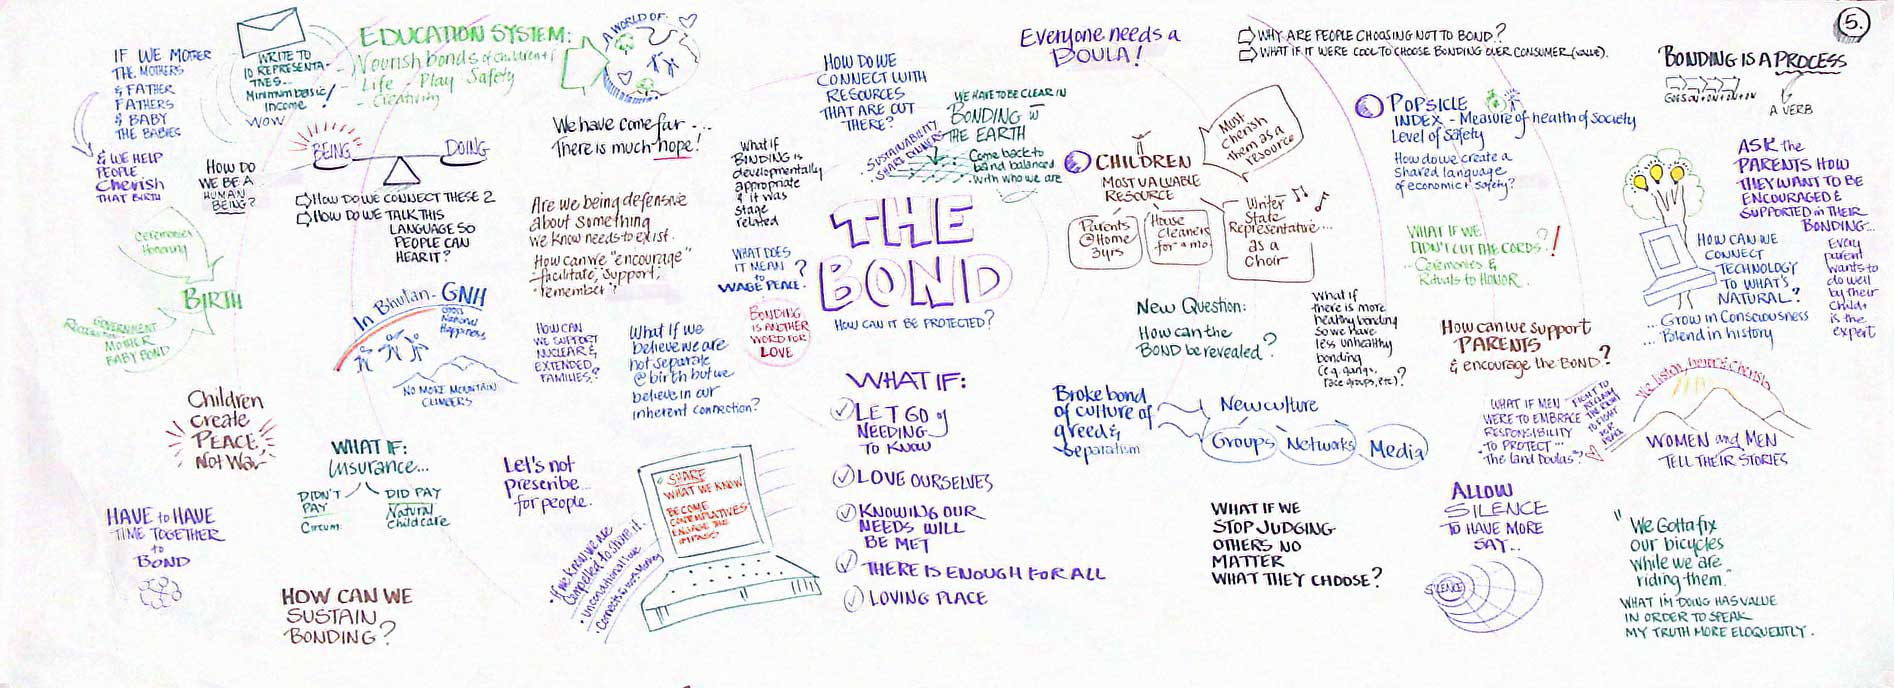 5.
IF WE MOTHER
THE MOTHERS
& FATHER
FATHERS
& BABY
THE BABIES
& WE HELP
PEOPLE
CHERISH
THAT BIRTH
WRITE TO
10 REPRESENTA-
TIVES...
Minimum basic
income!
WOW
EDUCATION SYSTEM:
- Nourish bonds of children &
- Life - Play Safety
- Creativity
A WORLD OF:
BEING
DOING
HOW DO
WE BE A
HUMAN
BEING?
HOW DO WE CONNECT THESE 2
HOW DO WE TALK THIS
LANGUAGE SO
PEOPLE CAN
HEAR IT?
Ceremonies
Honoring
BIRTH
GOVERNMENT
MOTHER
BABY BOND
In Bhutan - GNH
Gross
National
Happiness
NO MORE MOUNTAIN
CLIMBERS
Children
create
PEACE
Not War
WHAT IF:
Insurance...
DIDN'T
PAY
Circum.
DID PAY
Natural
Childcare
HAVE to HAVE
TIME TOGETHER
to
BOND
HOW CAN WE
SUSTAIN
BONDING?
We have come far -...
There is much hope!
Are we being defensive
about something
we know needs to exist.
How can we "encourage"
- facilitate, support,
- remember?
HOW CAN
WE SUPPORT
NUCLEAR &
EXTENDED
FAMILIES?
What if we
believe we are
not separate
@ birth but we
believe in our
inherent connection?
Let's not
prescribe...
for people.
SHARE
WHAT WE KNOW
BECOME
CONTEMPLATIVES
ENGAGE THE
If we know, we are
compelled to share it.
What if
BONDING is
developmentally
appropriate
& it was
stage
related
WHAT DOES
IT MEAN
to
WAGE PEACE?
BONDING
IS ANOTHER
WORD FOR
LOVE
HOW DO WE
CONNECT WITH
RESOURCES
THAT ARE OUT
THERE?
SUSTAINABILITY
WE HAVE TO BE CLEAR IN
BONDING w
THE EARTH
Come back to
band balanced
with who we are
THE
BOND
HOW CAN IT BE PROTECTED?
WHAT IF:
LET GO of
NEEDING
TO KNOW
LOVE OURSELVES
KNOWING OUR
NEEDS WILL
BE MET
THERE IS ENOUGH FOR ALL
LOVING PLACE
Everyone needs a
BOULA!
CHILDREN
MOST VALUABLE
RESOURCE
Must
Cherish
them as a
resource
Parents
@ Home
3yrs
House
Cleaners
for a mo
Writer
State
Representative...
as a
Choir
New Question:
How can the
BOND be revealed?
Broke bond
of culture of
greed &
separatism
New culture
Groups
Networks
Media
WHAT IF WE
STOP JUDGING
OTHERS NO
MATTER
WHAT THEY CHOOSE?
WHY ARE PEOPLE CHOOSING NOT TO BOND?
WHAT IF IT WERE COOL TO CHOOSE BONDING OVER CONSUMER (VALUE).
POPSICLE
INDEX - Measure of health of society
Level of Safety
How do we create a
shared language
of economic & safety?
WHAT IF WE
DIDN'T CUT THE CORDS?!
... Ceremonies &
Rituals to HONOR.
What if
there is more
healthy bonding
so we have
less unhealthy
bonding
(e.g. gangs,
race groups, etc)?
How can we support
PARENTS
& encourage the BOND?
WHAT IF MEN
WERE TO EMBRACE
RESPONSIBILITY
TO PROTECT...
"The Land Doulas"?
ALLOW
SILENCE
TO HAVE MORE
SAY...
SILENCE
BONDING IS A PROCESS
GOES ON + ON + ON + ON
A VERB
ASK the
PARENTS HOW
THEY WANT TO BE
ENCOURAGED &
SUPPORTED in THEIR
BONDING...
Every
parent
wants to
do well
by their
child &
is the
expert
HOW CAN WE
CONNECT
TECHNOLOGY
TO WHAT'S
NATURAL?
... Grow in Consciousness
... Blend in history
WOMEN and MEN
TELL THEIR STORIES
"We Gotta fix
our bicycles
while we are
riding them."
WHAT I'M DOING HAS VALUE
IN ORDER TO SPEAK
MY TRUTH MORE ELOQUENTLY.